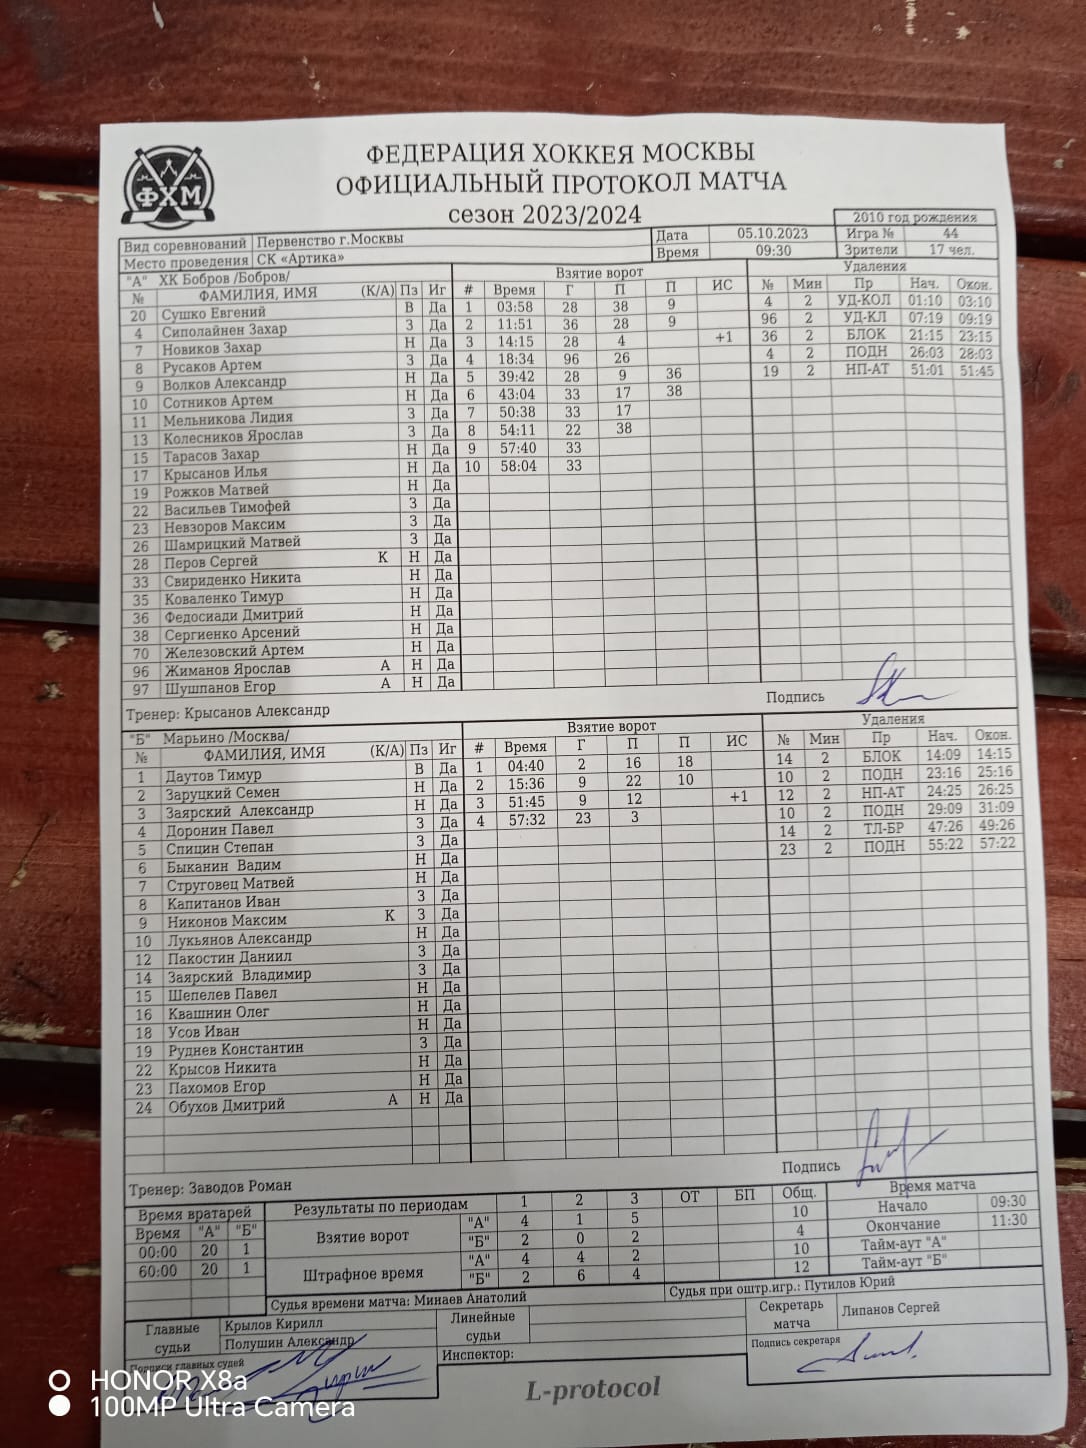 ФЕДЕРАЦИЯ ХОККЕЯ МОСКВЫ
ОФИЦИАЛЬНЫЙ ПРОТОКОЛ МАТЧА
сезон 2023/2024
ФХМ
2010 год рождения
Вид соревнований Первенство г.Москвы Дата 05.10.2023 Игра № 44
Место проведения СК «Артика» Время 09:30 Зрители 17 чел.
"А" ХК Бобров /Бобров/ Взятие ворот Удаления
№ ФАМИЛИЯ, ИМЯ (К/А) Пз Иг # Время Г П П ИС № Мин Пр Нач. Окон.
20 Сушко Евгений В Да 1 03:58 28 38 9 4 2 УД-КОЛ 01:10 03:10
4 Сиполайнен Захар З Да 2 11:51 36 28 9 96 2 УД-КЛ 07:19 09:19
7 Новиков Захар Н Да 3 14:15 28 4 +1 36 2 БЛОК 21:15 23:15
8 Русаков Артем З Да 4 18:34 96 26 4 2 ПОДН 26:03 28:03
9 Волков Александр Н Да 5 39:42 28 9 36 19 2 НП-АТ 51:01 51:45
10 Сотников Артем Н Да 6 43:04 33 17 38
11 Мельникова Лидия З Да 7 50:38 33 17
13 Колесников Ярослав З Да 8 54:11 22 38
15 Тарасов Захар Н Да 9 57:40 33
17 Крысанов Илья Н Да 10 58:04 33
19 Рожков Матвей Н Да
22 Васильев Тимофей З Да
23 Невзоров Максим З Да
26 Шамрицкий Матвей З Да
28 Перов Сергей К Н Да
33 Свириденко Никита Н Да
35 Коваленко Тимур Н Да
36 Федосиади Дмитрий Н Да
38 Сергиенко Арсений Н Да
70 Железовский Артем Н Да
96 Жиманов Ярослав А Н Да
97 Шушпанов Егор А Н Да
Тренер: Крысанов Александр Подпись
"Б" Марьино /Москва/ Взятие ворот Удаления
№ ФАМИЛИЯ, ИМЯ (К/А) Пз Иг # Время Г П П ИС № Мин Пр Нач. Окон.
1 Даутов Тимур В Да 1 04:40 2 16 18 14 2 БЛОК 14:09 14:15
2 Заруцкий Семен Н Да 2 15:36 9 22 10 10 2 ПОДН 23:16 25:16
3 Заярский Александр Н Да 3 51:45 9 12 +1 12 2 НП-АТ 24:25 26:25
4 Доронин Павел З Да 4 57:32 23 3 10 2 ПОДН 29:09 31:09
5 Спицин Степан З Да 14 2 ТЛ-БР 47:26 49:26
6 Быканин Вадим Н Да 23 2 ПОДН 55:22 57:22
7 Струговец Матвей Н Да
8 Капитанов Иван З Да
9 Никонов Максим К З Да
10 Лукьянов Александр Н Да
12 Пакостин Даниил З Да
14 Заярский Владимир З Да
15 Шепелев Павел Н Да
16 Квашнин Олег Н Да
18 Усов Иван Н Да
19 Руднев Константин З Да
22 Крысов Никита Н Да
23 Пахомов Егор Н Да
24 Обухов Дмитрий А Н Да
Тренер: Заводов Роман Подпись
Время вратарей Результаты по периодам 1 2 3 ОТ БП Общ. Время матча
Время "А" "Б" Взятие ворот "А" 4 1 5 10 Начало 09:30
00:00 20 1 "Б" 2 0 2 4 Окончание 11:30
60:00 20 1 Штрафное время "А" 4 4 2 10 Тайм-аут "А"
"Б" 2 6 4 12 Тайм-аут "Б"
Судья времени матча: Минаев Анатолий Судья при оштр.игр.: Путилов Юрий
Главные судьи Крылов Кирилл Линейные судьи Секретарь матча Липанов Сергей
Полушин Александр
Подписи главных судей Инспектор: Подпись секретаря
L-protocol
HONOR X8a
100MP Ultra Camera